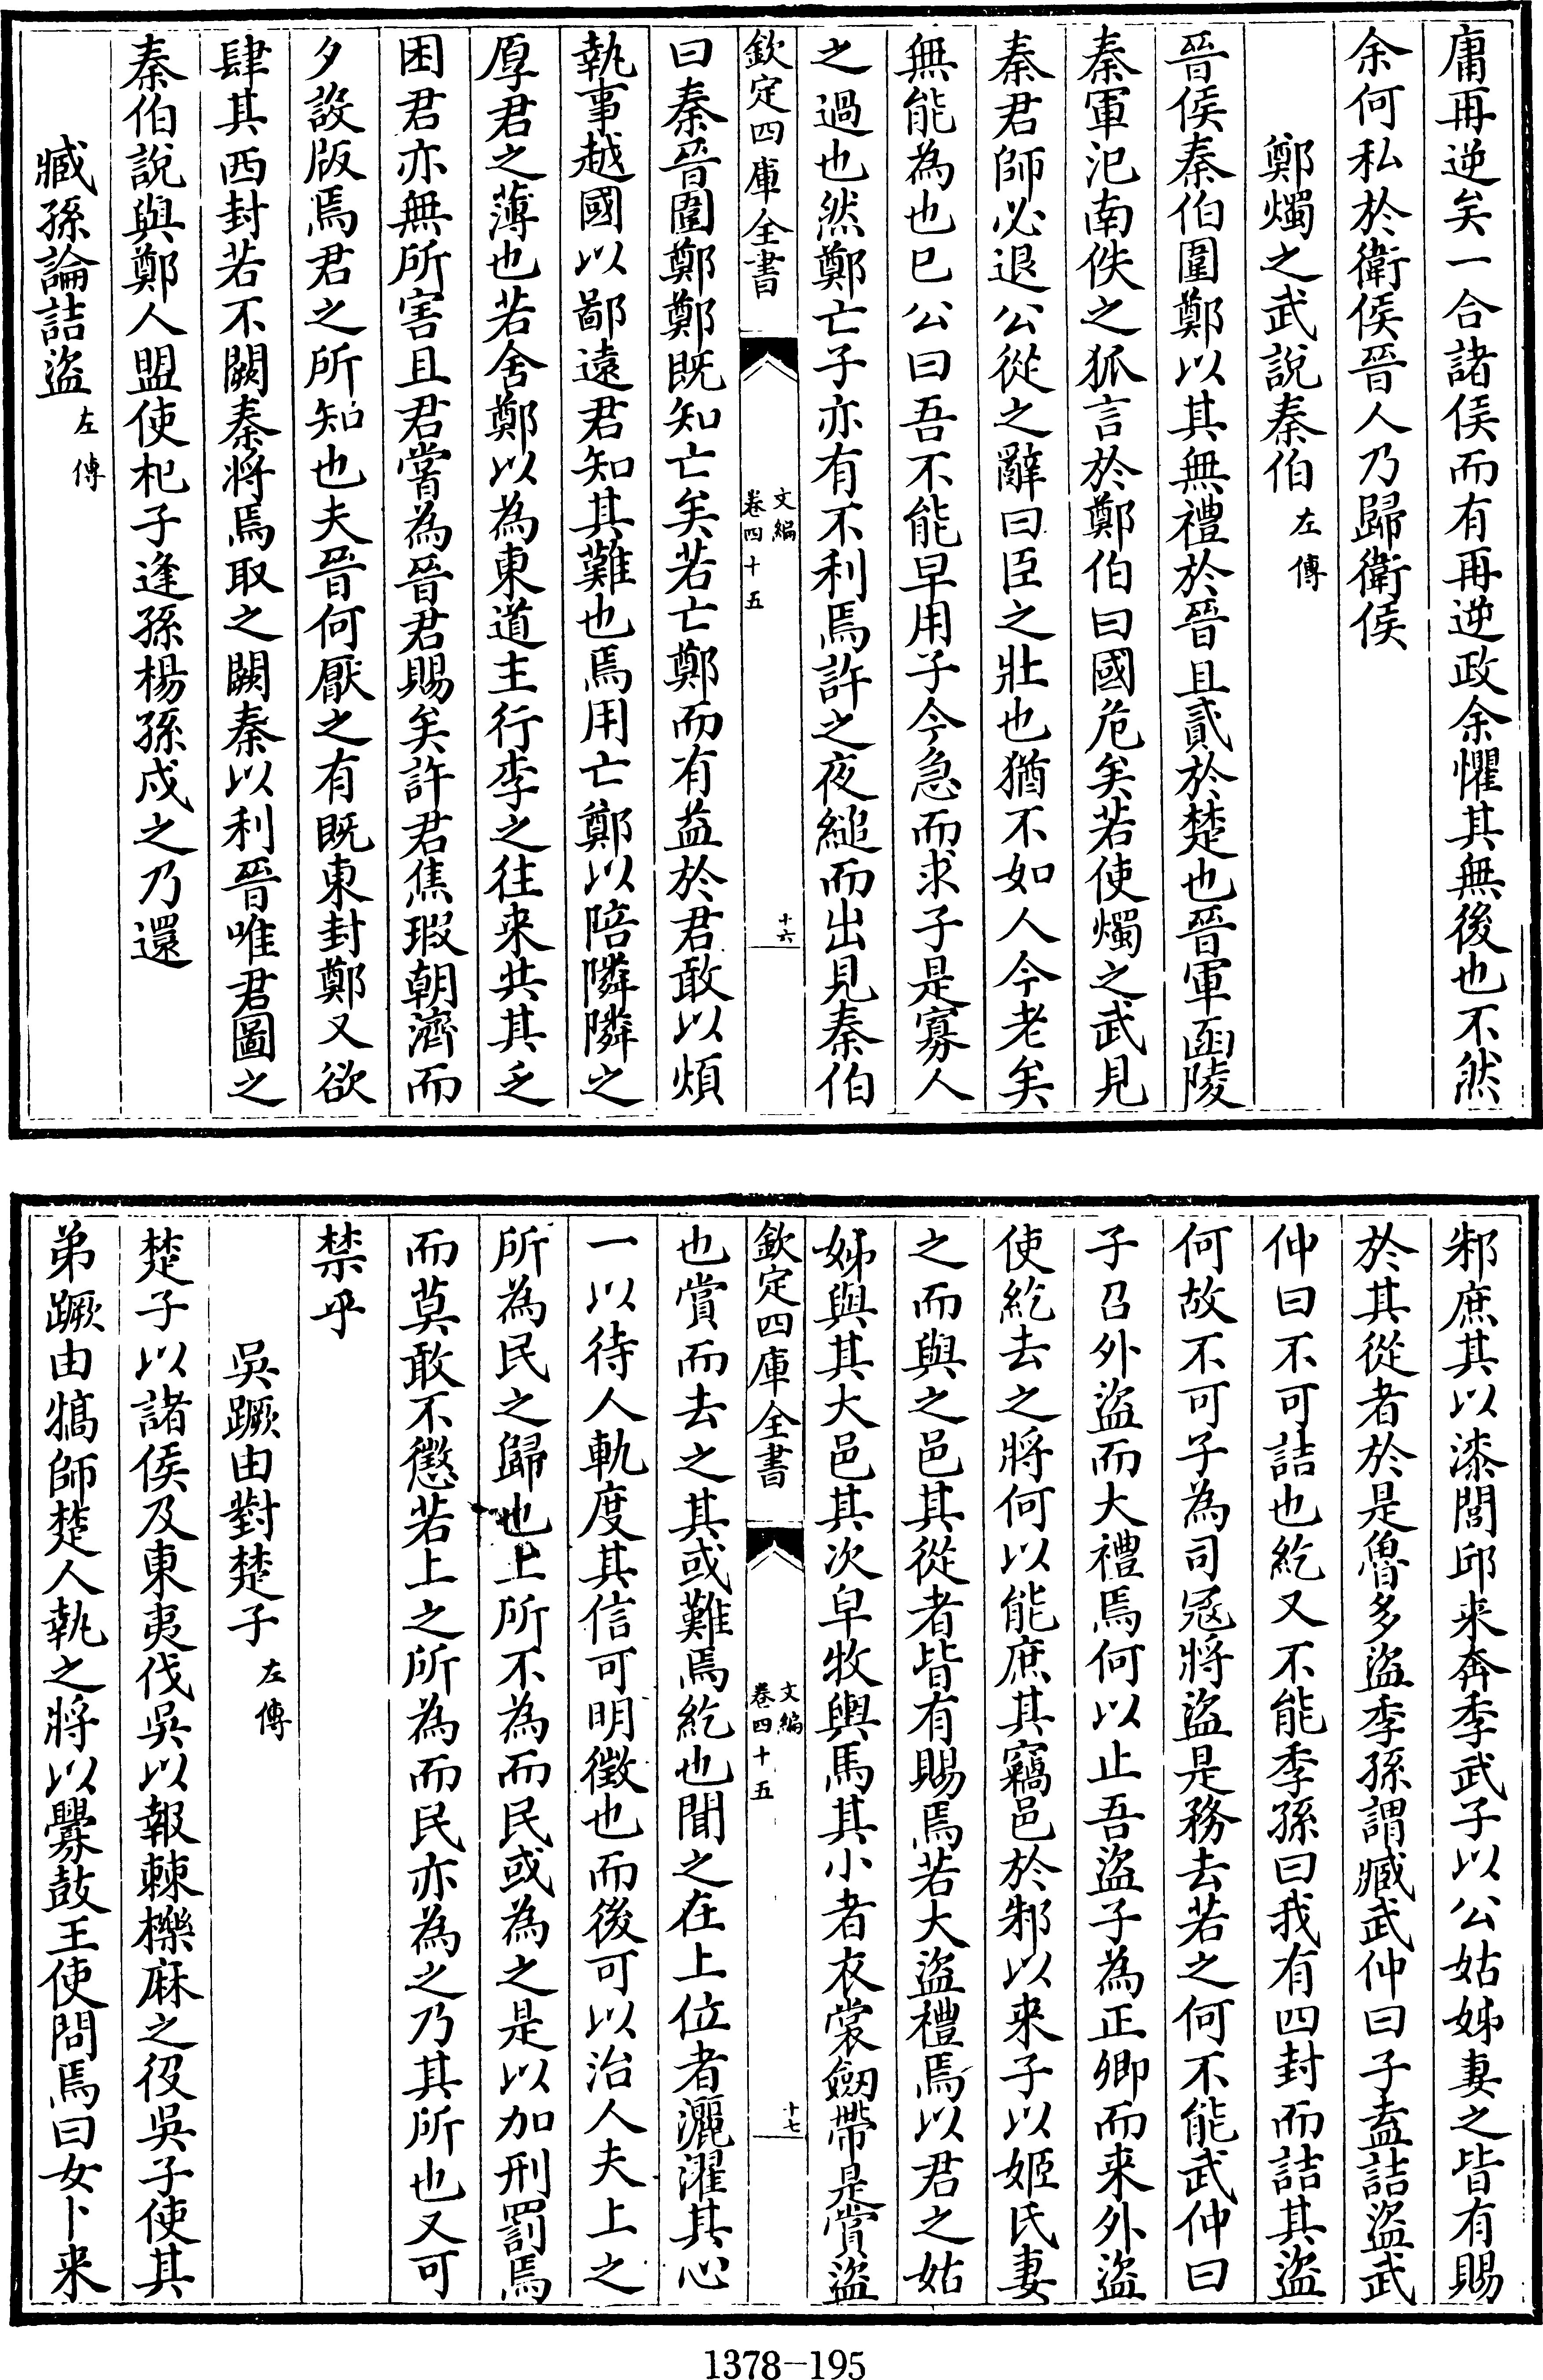 庸再逆矣一合諸侯而有再逆政余懼其無後也不然
余何私於衛侯晉人乃歸衛侯
鄭燭之武說秦伯 左傳
晉侯秦伯圍鄭以其無禮於晉且貳於楚也晉軍函陵
秦軍氾南佚之狐言於鄭伯曰國危矣若使燭之武見
秦君師必退公從之辭曰臣之壯也猶不如人今老矣
無能為也已公曰吾不能早用子今急而求子是寡人
之過也然鄭亡子亦有不利焉許之夜縋而出見秦伯
欽定四庫全書 文編 卷四十五 十六
曰秦晉圍鄭鄭既知亡矣若亡鄭而有益於君敢以煩
執事越國以鄙遠君知其難也焉用亡鄭以陪隣隣之
厚君之薄也若舍鄭以為東道主行李之往来共其乏
困君亦無所害且君嘗為晉君賜矣許君焦瑕朝濟而
夕設版焉君之所知也夫晉何厭之有既東封鄭又欲
肆其西封若不闕秦将焉取之闕秦以利晉唯君圖之
秦伯說與鄭人盟使杞子逢孫楊孫戍之乃還
臧孫論詰盜 左傳
邾庶其以漆閭邱来奔季武子以公姑姊妻之皆有賜
於其從者於是魯多盜季孫謂臧武仲曰子盍詰盜武
仲曰不可詰也紇又不能季孫曰我有四封而詰其盜
何故不可子為司冦將盜是務去若之何不能武仲曰
子召外盜而大禮焉何以止吾盜子為正卿而来外盜
使紇去之將何以能庶其竊邑於邾以来子以姬氏妻
之而與之邑其從者皆有賜焉若大盜禮焉以君之姑
姊與其大邑其次皁牧輿馬其小者衣裳劒帶是賞盜
欽定四庫全書 文編 卷四十五 十七
也賞而去之其或難焉紇也聞之在上位者灑濯其心
一以待人軌度其信可明徵也而後可以治人夫上之
所為民之歸也上所不為而民或為之是以加刑罰焉
而莫敢不懲若上之所為而民亦為之乃其所也又可
禁乎
吳蹶由對楚子 左傳
楚子以諸侯及東夷伐吳以報棘櫟麻之役吳子使其
弟蹶由犒師楚人執之將以釁鼓王使問焉曰女卜来
1378—195